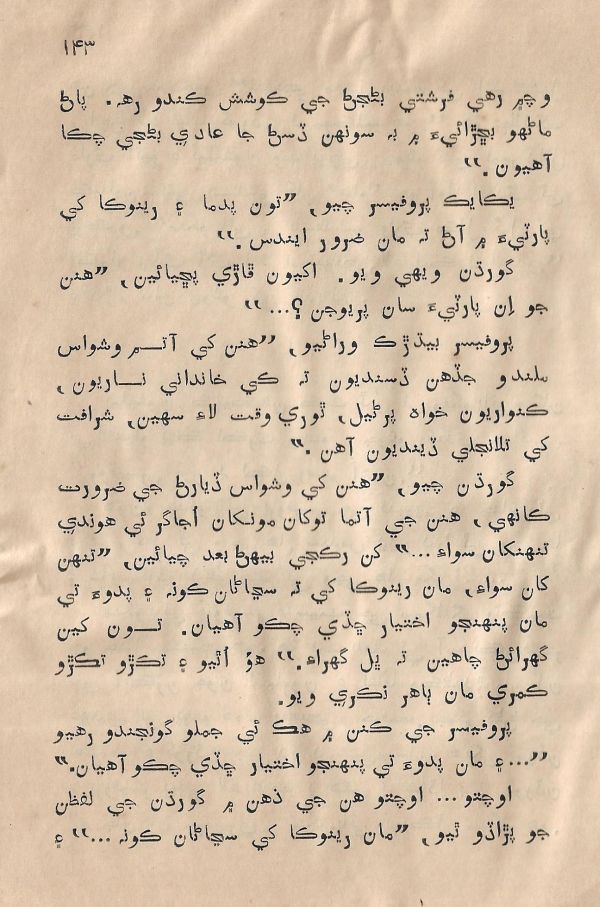 ۱۴۳
وچ۾ رهي فرشتي بڻجڻ جي ڪوشش ڪندو رهہ. پاڻ
ماڻهو بڇڙائيءَ ۾ بہ سونهن ڏسڻ جا عادي بڻجي چڪا
آهيون.“
يڪايڪ پروفيسر چيو، ”تون پدما ۽ رينوڪا کي
پارٽيءَ ۾ آڻ تہ مان ضرور ايندس.“
گورڌن ويهي ويو. اکيون ڦاڙي پڇيائين، ”هنن
جو اِن پارٽيءَ سان پريوجن؟...“
پروفيسر بيڌڙڪ ورائيو، ”هنن کي آتم وشواس
ملندو جڏهن ڏسنديون تہ ڪي خانداني ناريون،
ڪنواريون خواه پرڻيل، ٿوري وقت لاءِ سهين، شرافت
کي تلانجلي ڏينديون آهن.“
گورڌن چيو، ”هنن کي وشواس ڏيارڻ جي ضرورت
ڪانهي، هنن جي آتما توکان مونکان اُجاگر ئي هوندي
تنهنکان سواءِ...“ کن رڪجي بيهڻ بعد چيائين، ”تنهن
کان سواءِ، مان رينوڪا کي تہ سڃاڻان ڪونہ ۽ پدوءَ تي
مان پنهنجو اختيار ڇڏي چڪو آهيان. تون کين
گهرائڻ چاهين تہ ڀل گهراءِ.“ هوُ اُٿيو ۽ تڪڙو تڪڙو
ڪمري مان ٻاهر نڪري ويو.
پروفيسر جي ڪنن ۾ هڪ ئي جملو گونجندو رهيو
”...۽ مان پدوءَ تي پنهنجو اختيار ڇڏي چڪو آهيان.“
اوچتو... اوچتو هن جي ذهن ۾ گورڌن جي لفظن
جو پڙاڏو ٿيو، ”مان رينوڪا کي سڃاڻان ڪونہ...“ ۽